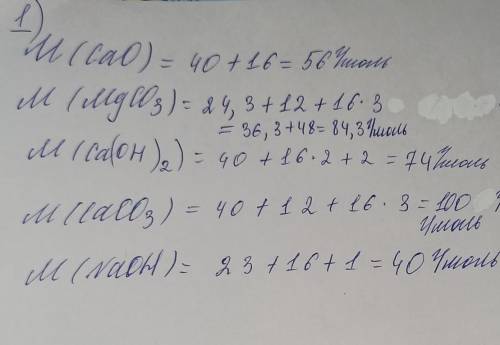 1)
M(CaO) = 40 + 16 = 56 г/моль
M(MgCO₃) = 24,3 + 12 + 16·3
= 36,3 + 48 = 84,3 г/моль
M(Ca(OH)₂) = 40 + 16·2 + 2 = 74 г/моль
M(CaCO₃) = 40 + 12 + 16·3 = 100
г/моль
M(NaOH) = 23 + 16 + 1 = 40 г/моль